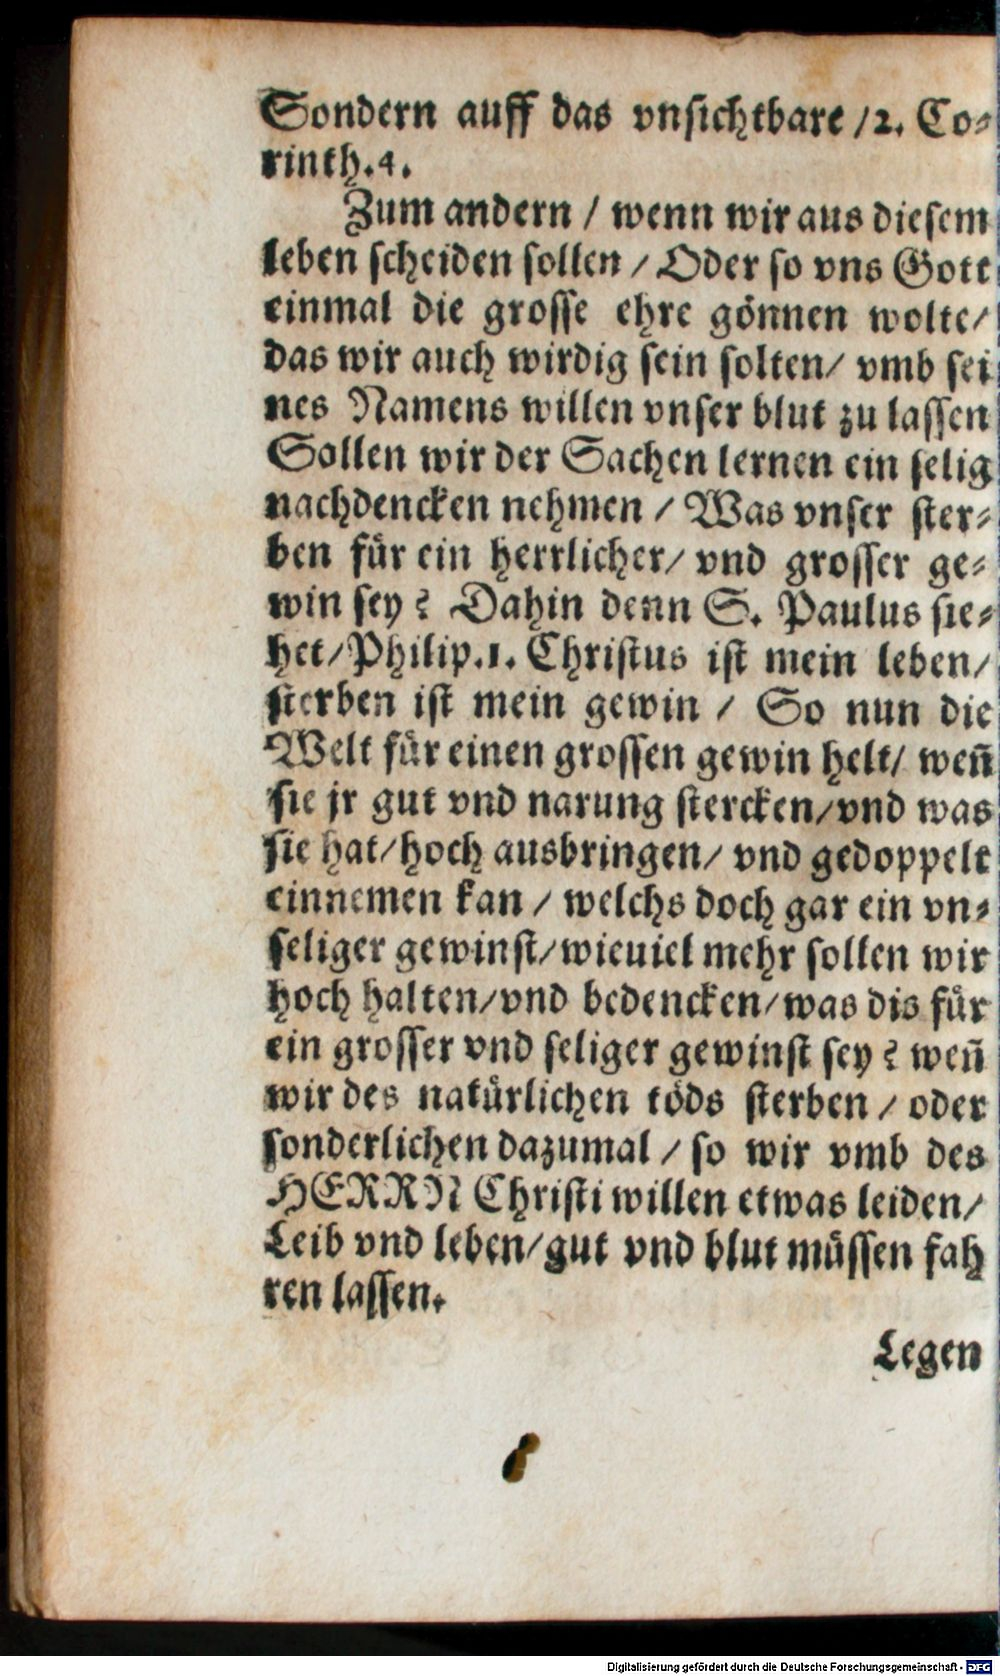 Sondern auff das vnsichtbare /2. Co-
rinth.4.
Zum andern / wenn wir aus diesem
leben scheiden sollen / Oder so vns Gott
einmal die grosse ehre gönnen wolte/
das wir auch wirdig sein solten/ vmb sei
nes Namens willen vnser blut zu lassen
Sollen wir der Sachen lernen ein selig
nachdencken nehmen / Was vnser ster-
ben für ein herrlicher/ vnd grosser ge-
win sey? Dahin denn S. Paulus sie-
het/Philip.1. Christus ist mein leben/
sterben ist mein gewin / So nun die
Welt für einen grossen gewin helt/ weñ
sie jr gut vnd narung stercken/vnd was
sie hat/hoch ausbringen/ vnd gedoppelt
einnemen kan / welchs doch gar ein vn-
seliger gewinst/wieuiel mehr sollen wir
hoch halten/vnd bedencken/was dis für
ein grosser vnd seliger gewinst sey? weñ
wir des natürlichen töds sterben / oder
sonderlichen dazumal / so wir vmb des
HERRN Christi willen etwas leiden/
Leib vnd leben/gut vnd blut müssen fah
ren lassen.
Legen
Digitalisierung gefördert durch die Deutsche Forschungsgemeinschaft - DFG